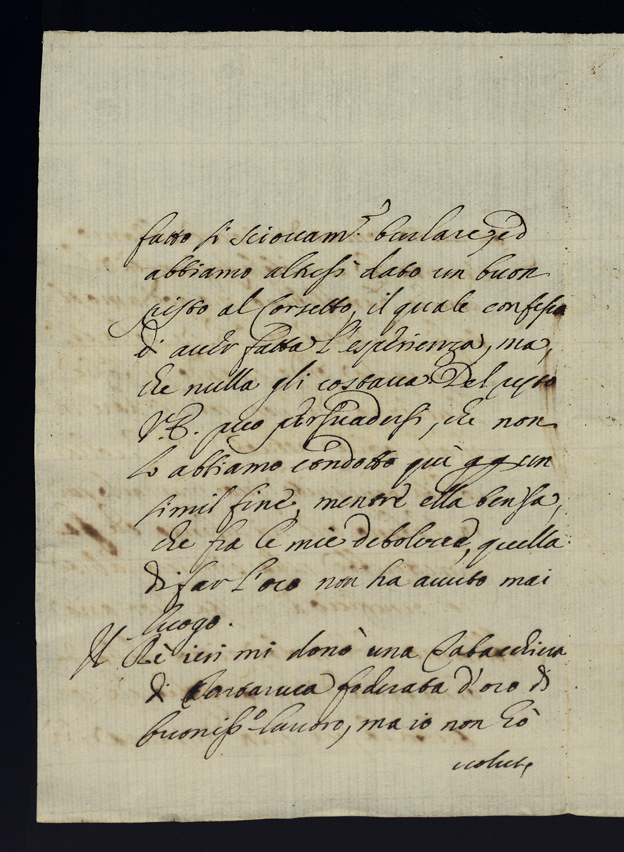 fatto sì sciovam.te burlare, ed
abbiamo altresì dato un buon
al Corsetto, il quale confessa
di aver fatta l'esperienza, ma,
che nulla gli costava. Del resto
V.E. può persuadersi, che non
lo abbiamo condotto quì per un
simil fine, mentre ella ben sà,
che fra le mie debolezze, quella
di far l'oro non ha avuto mai
luogo.
Il Rè ieri mi donò una Tabacchiera
di Tartaruca foderata d'oro di
buoniss.o lavoro, ma io non hò